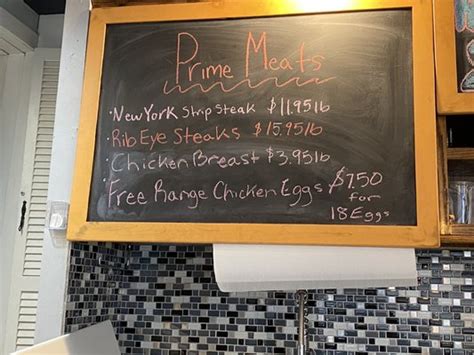 Prime Meats
• New York Strip Steak $11.95lb
• Rib Eye Steaks $15.95lb
• Chicken Breast $3.95lb
• Free Range Chicken Eggs $7.50
for
18 Eggs